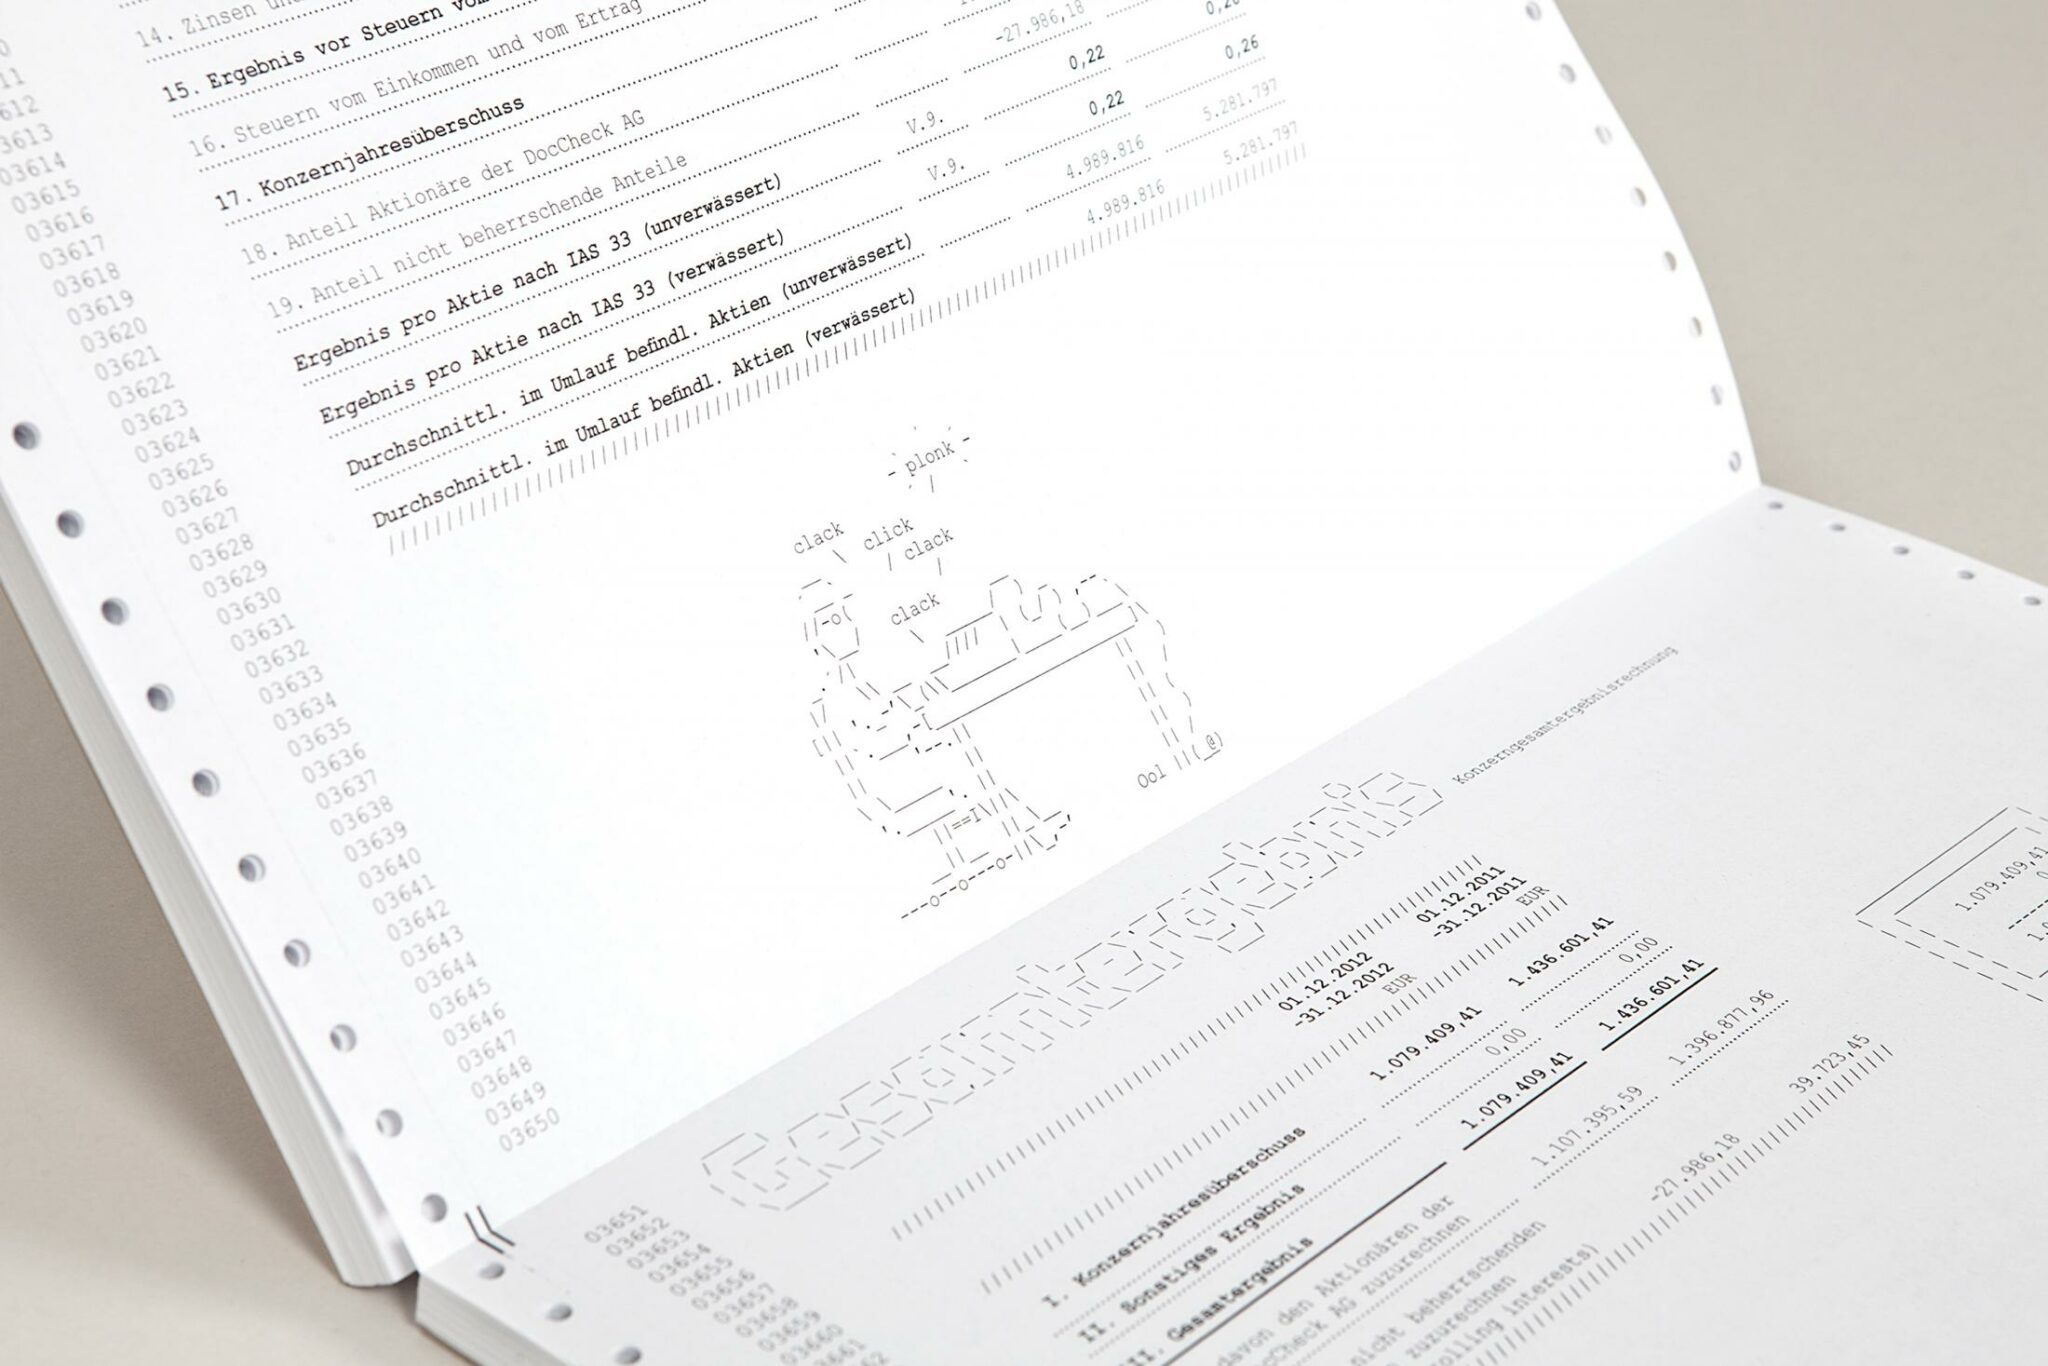 14. Zinsen
15. Ergebnis vor Steuern vom
16. Steuern vom Einkommen und vom Ertrag
17. Konzernjahresüberschuss
18. Anteil Aktionäre der DocCheck AG
19. Anteil nicht beherrschende Anteile -27.986,18
Ergebnis pro Aktie nach IAS 33 (unverwässert) V.9. 0,22 0,26
Ergebnis pro Aktie nach IAS 33 (verwässert) V.9. 0,22 0,26
Durchschnittl. im Umlauf befindl. Aktien (unverwässert) 4.989.816 5.281.797
Durchschnittl. im Umlauf befindl. Aktien (verwässert) 4.989.816 5.281.797
- plonk -
clack click
clack
clack
Ool
03612
03613
03614
03615
03616
03617
03618
03619
03620
03621
03622
03623
03624
03625
03626
03627
03628
03629
03630
03631
03632
03633
03634
03635
03636
03637
03638
03639
03640
03641
03642
03643
03644
03645
03646
03647
03648
03649
03650
Gesamtergebnis Konzerngesamtergebnisrechnung
01.12.2012 01.12.2011
-31.12.2012 -31.12.2011
EUR EUR
I. Konzernjahresüberschuss 1.079.409,41 1.436.601,41
II. Sonstiges Ergebnis 0,00 0,00
III. Gesamtergebnis 1.079.409,41 1.436.601,41
davon den Aktionären der
DocCheck AG zuzurechnen 1.107.395,59 1.396.877,96
nicht beherrschenden
zuzurechnen
interests) -27.986,18 39.723,45
1.079.409,41
03651
03652
03653
03654
03655
03656
03657
03658
03659
03660